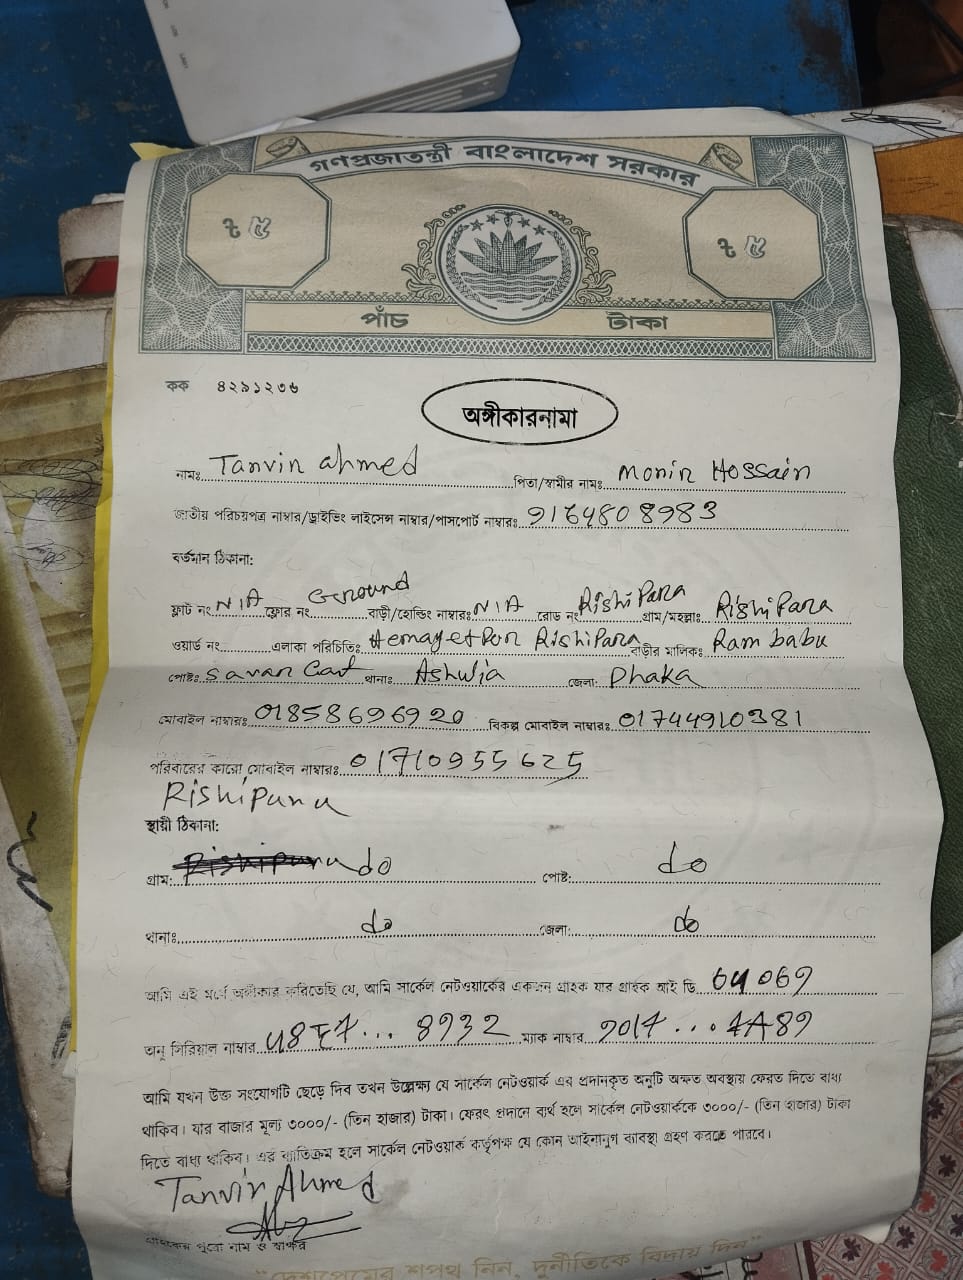 গণপ্রজাতন্ত্রী বাংলাদেশ সরকার
ট ৫ ট ৫
পাঁচ টাকা
কক ৪২৯১২৩৬
অঙ্গীকারনামা
নামঃ Tanvin ahmed পিতা/স্বামীর নামঃ Monin Hossain
জাতীয় পরিচয়পত্র নাম্বার/ড্রাইভিং লাইসেন্স নাম্বার/পাসপোর্ট নাম্বারঃ 9164808983
বর্তমান ঠিকানা:
ফ্লাট নং N/A ফ্লোর নং Ground বাড়ী/হোল্ডিং নাম্বারঃ N/A রোড নং Rishi Para গ্রাম/মহল্লাঃ Rishi Para
ওয়ার্ড নং এলাকা পরিচিতিঃ Hemayetpur Rishi Para বাড়ীর মালিকঃ Ram babu
পোষ্টঃ Savar থানাঃ Ashulia জেলা: Dhaka
মোবাইল নাম্বারঃ 01858696920 বিকল্প মোবাইল নাম্বারঃ 01744910381
পরিবারের কারো মোবাইল নাম্বারঃ 01710955625
Rishipara
স্থায়ী ঠিকানা:
গ্রাম: do পোষ্ট: do
থানাঃ do জেলা: do
আমি এই মর্মে অঙ্গীকার করিতেছি যে, আমি সার্কেল নেটওয়ার্কের একজন গ্রাহক যার গ্রাহক আই ডি 64069
অনু সিরিয়াল নাম্বার 48F7... 8932 ম্যাক নাম্বার 9017...4A89
আমি যখন উক্ত সংযোগটি ছেড়ে দিব তখন উল্লেক্ষ্য যে সার্কেল নেটওয়ার্ক এর প্রদানকৃত অনুটি অক্ষত অবস্থায় ফেরত দিতে বাধ্য
থাকিব। যার বাজার মূল্য ৩০০০/- (তিন হাজার) টাকা। ফেরৎ প্রদানে ব্যর্থ হলে সার্কেল নেটওয়ার্ককে ৩০০০/- (তিন হাজার) টাকা
দিতে বাধ্য থাকিব। এর ব্যতিক্রম হলে সার্কেল নেটওয়ার্ক কর্তৃপক্ষ যে কোন আইনানুগ ব্যাবস্থা গ্রহণ করতে পারবে।
Tanvin Ahmed
গ্রাহকের পুরো নাম ও স্বাক্ষর
"দেশপ্রেমের শপথ নিন, দুর্নীতিকে বিদায় দিন"